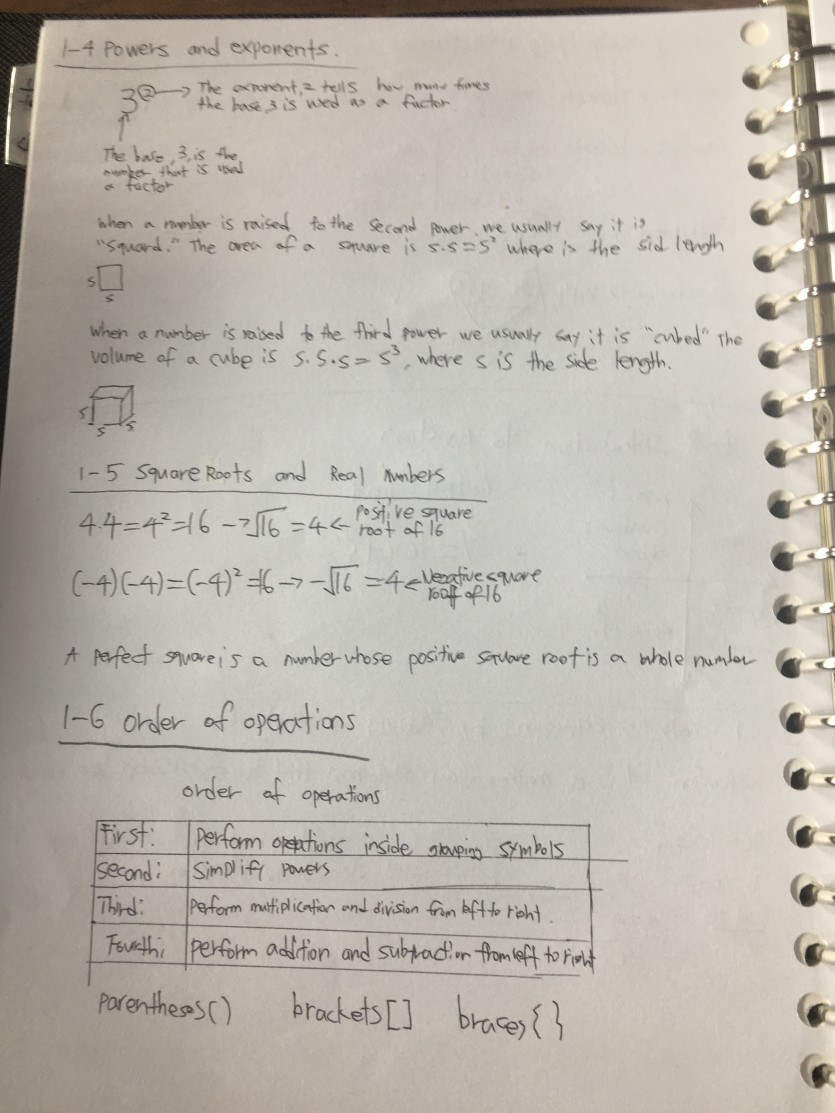 1-4 Powers and exponents.
3² → The exponent, 2 tells how many times
the base, 3 is used as a factor.
The base, 3, is the
number that is used
a factor
When a number is raised to the second power, we usually say it is
"Squard." The area of a square is s·s=s² where is the sid length
s
s
When a number is raised to the third power we usually say it is "cubed" The
volume of a cube is s·s·s=s³, where s is the side length.
s
s s
1-5 Square Roots and Real numbers
4·4=4²=16 → √16=4 ← positive square
root of 16
(-4)(-4)=(-4)²=16 → -√16=4 ← Negative square
root of 16
A perfect square is a number whose positive square root is a whole number
1-6 order of operations
order of operations
First: perform operations inside grouping symbols
Second: Simplify powers
Third: perform multiplication and division from left to right.
Fourth; perform addition and subtraction from left to right
Parentheses() brackets[] braces{}